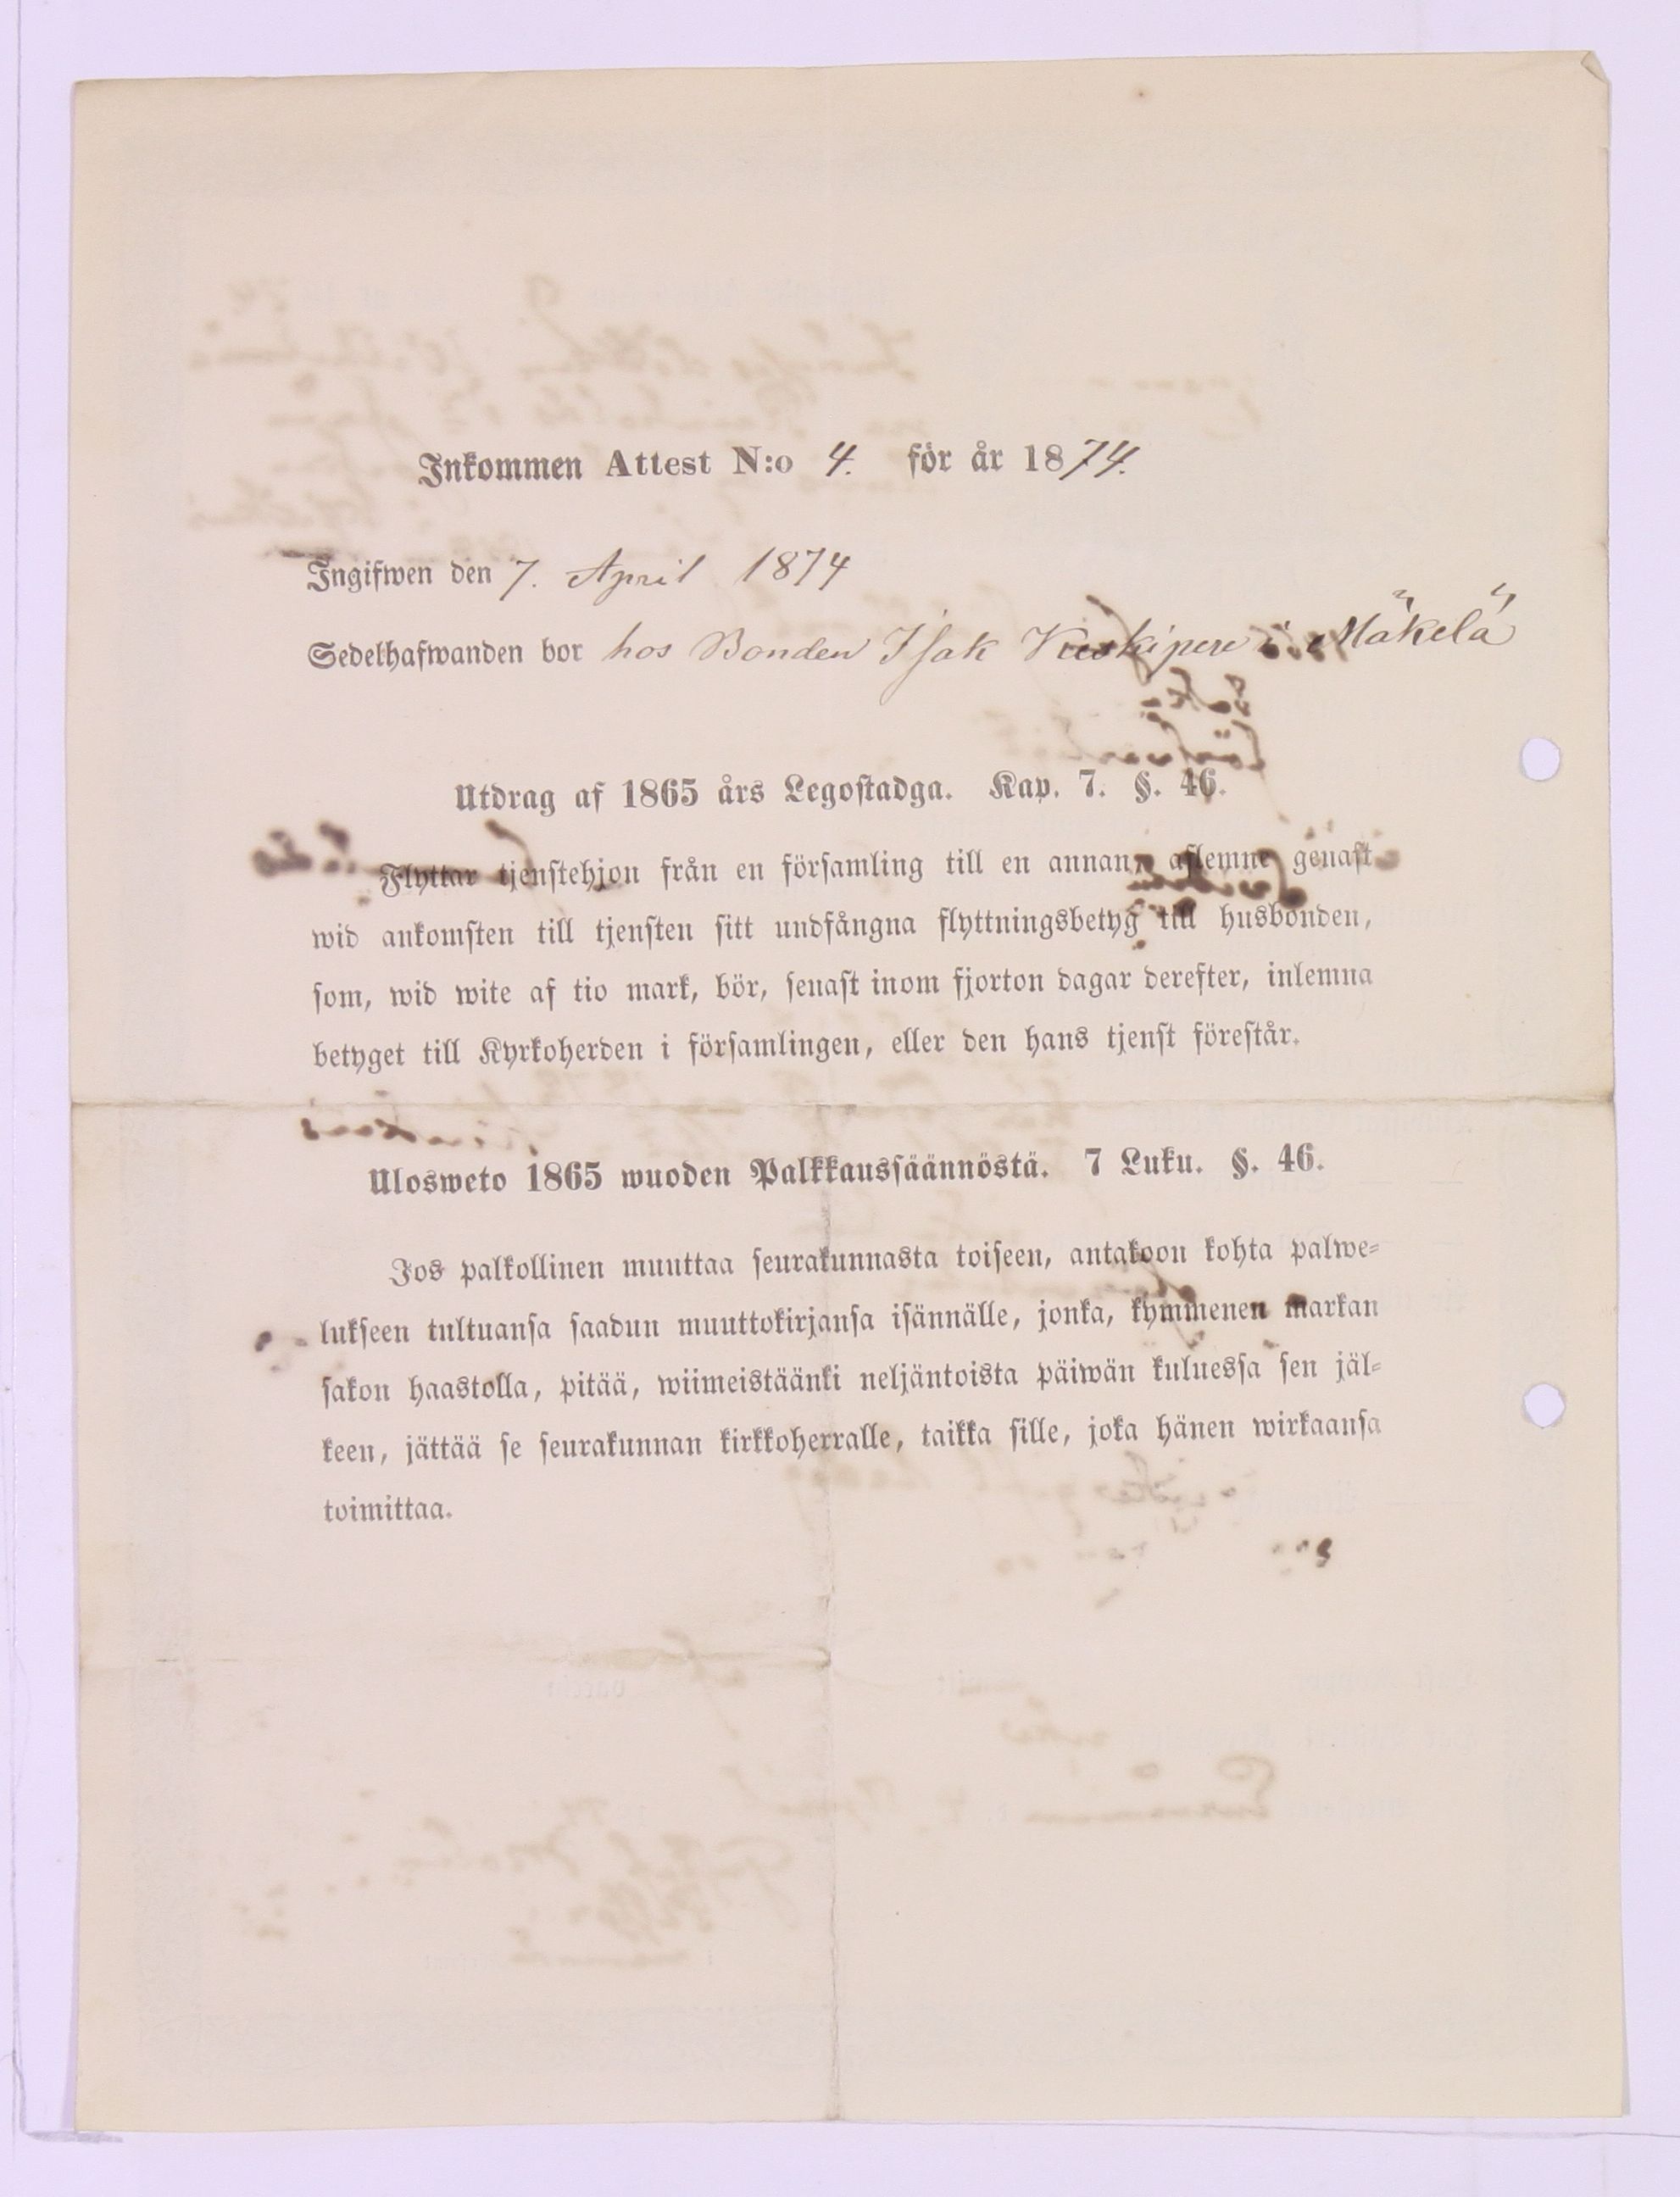 Inkommen Attest N:o 4. för år 1874.
Ingifwen den 7. April 1874
Sedelhafwanden bor hos Bonden Isak Keskipere i Mäkelä
Utdrag af 1865 års Legostadga. Kap. 7. §. 46.
Flyttar tjenstehjon från en församling till en annan, aflemne genast
wid ankomsten till tjensten sitt undfångna flyttningsbetyg till husbonden,
som, wid wite af tio mark, bör, senast inom fjorton dagar derefter, inlemna
betyget till Kyrkoherden i församlingen, eller den hans tjenst förestår.
Ulosweto 1865 wuoden Palkkaussäännöstä. 7 Luku. §. 46.
Jos palkollinen muuttaa seurakunnasta toiseen, antakoon kohta palwe=
lukseen tultuansa saadun muuttokirjansa isännälle, jonka, kymmenen markan
sakon haastolla, pitää, wiimeistäänki neljäntoista päiwän kuluessa sen jäl=
keen, jättää se seurakunnan kirkkoherralle, taikka sille, joka hänen wirkaansa
toimittaa.